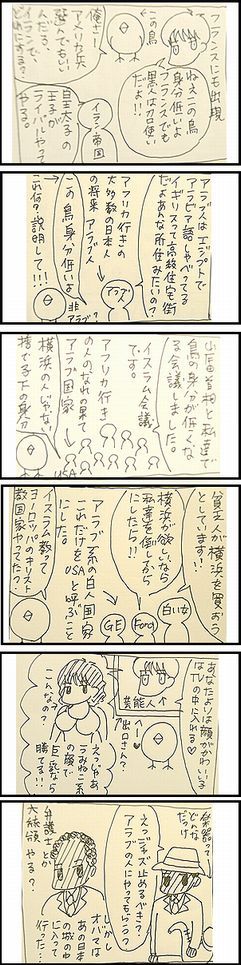 フランスにも出現
この鳥
ねえこの鳥
身分低いよ
フランスでも
黒人は力口使い
だよ!!
俺さー
アメリカ兵
選んでもいい
んだる、
イランで、
どれにする?
イラン・帝国
皇太子の
王子が
ライバルやって
やる。
アラブ人はエジプトで
アラビア語しゃべってる
イギリスって高級住宅街
だよあんな所住みたいの?
アフリカ行きの
大多数の日本人
の将来 アラブ人
アラブ
この鳥身分低いよ
非
アラブ?
これ何?説明して!!!
山辰首相と私達で
鳥の身分が低くな
る会議しました。
イスラム会議
です。
アフリカ行き
の人のなれの果て
アラブ国家
USA
横浜の人じゃない
捨てる下の身分
貧乏人が横浜を買おう
としています!
横浜が欲しいなら
私達を倒してから
にしたら!!
白い女
Ford
GE
アラブ系の白人国家
これだけをUSAと呼ぶこと
にした。
イスラム教って
ヨーロッパのキリスト
教国家やってた?
あなたよりは顔がかわいい子
はTVの中に入れる♡
芸能人↑
出っさん人?
へー♥
えっじゃあ
うみねこ系
の顔で
巨乳なら
勝てる!!!
こんなの?
楽器って
どれだっけ
えっジャズ止めるべき?
アラブの人にやってもらう?
しかし
オバマは
あの日本
の城の中
に入って
行った…
弁護士とか
大統領やる?